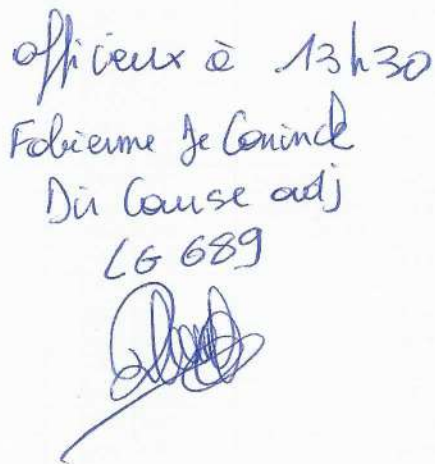 officieux à 13h30
Fabienne De Coninck
Dir Course adj
LG 689